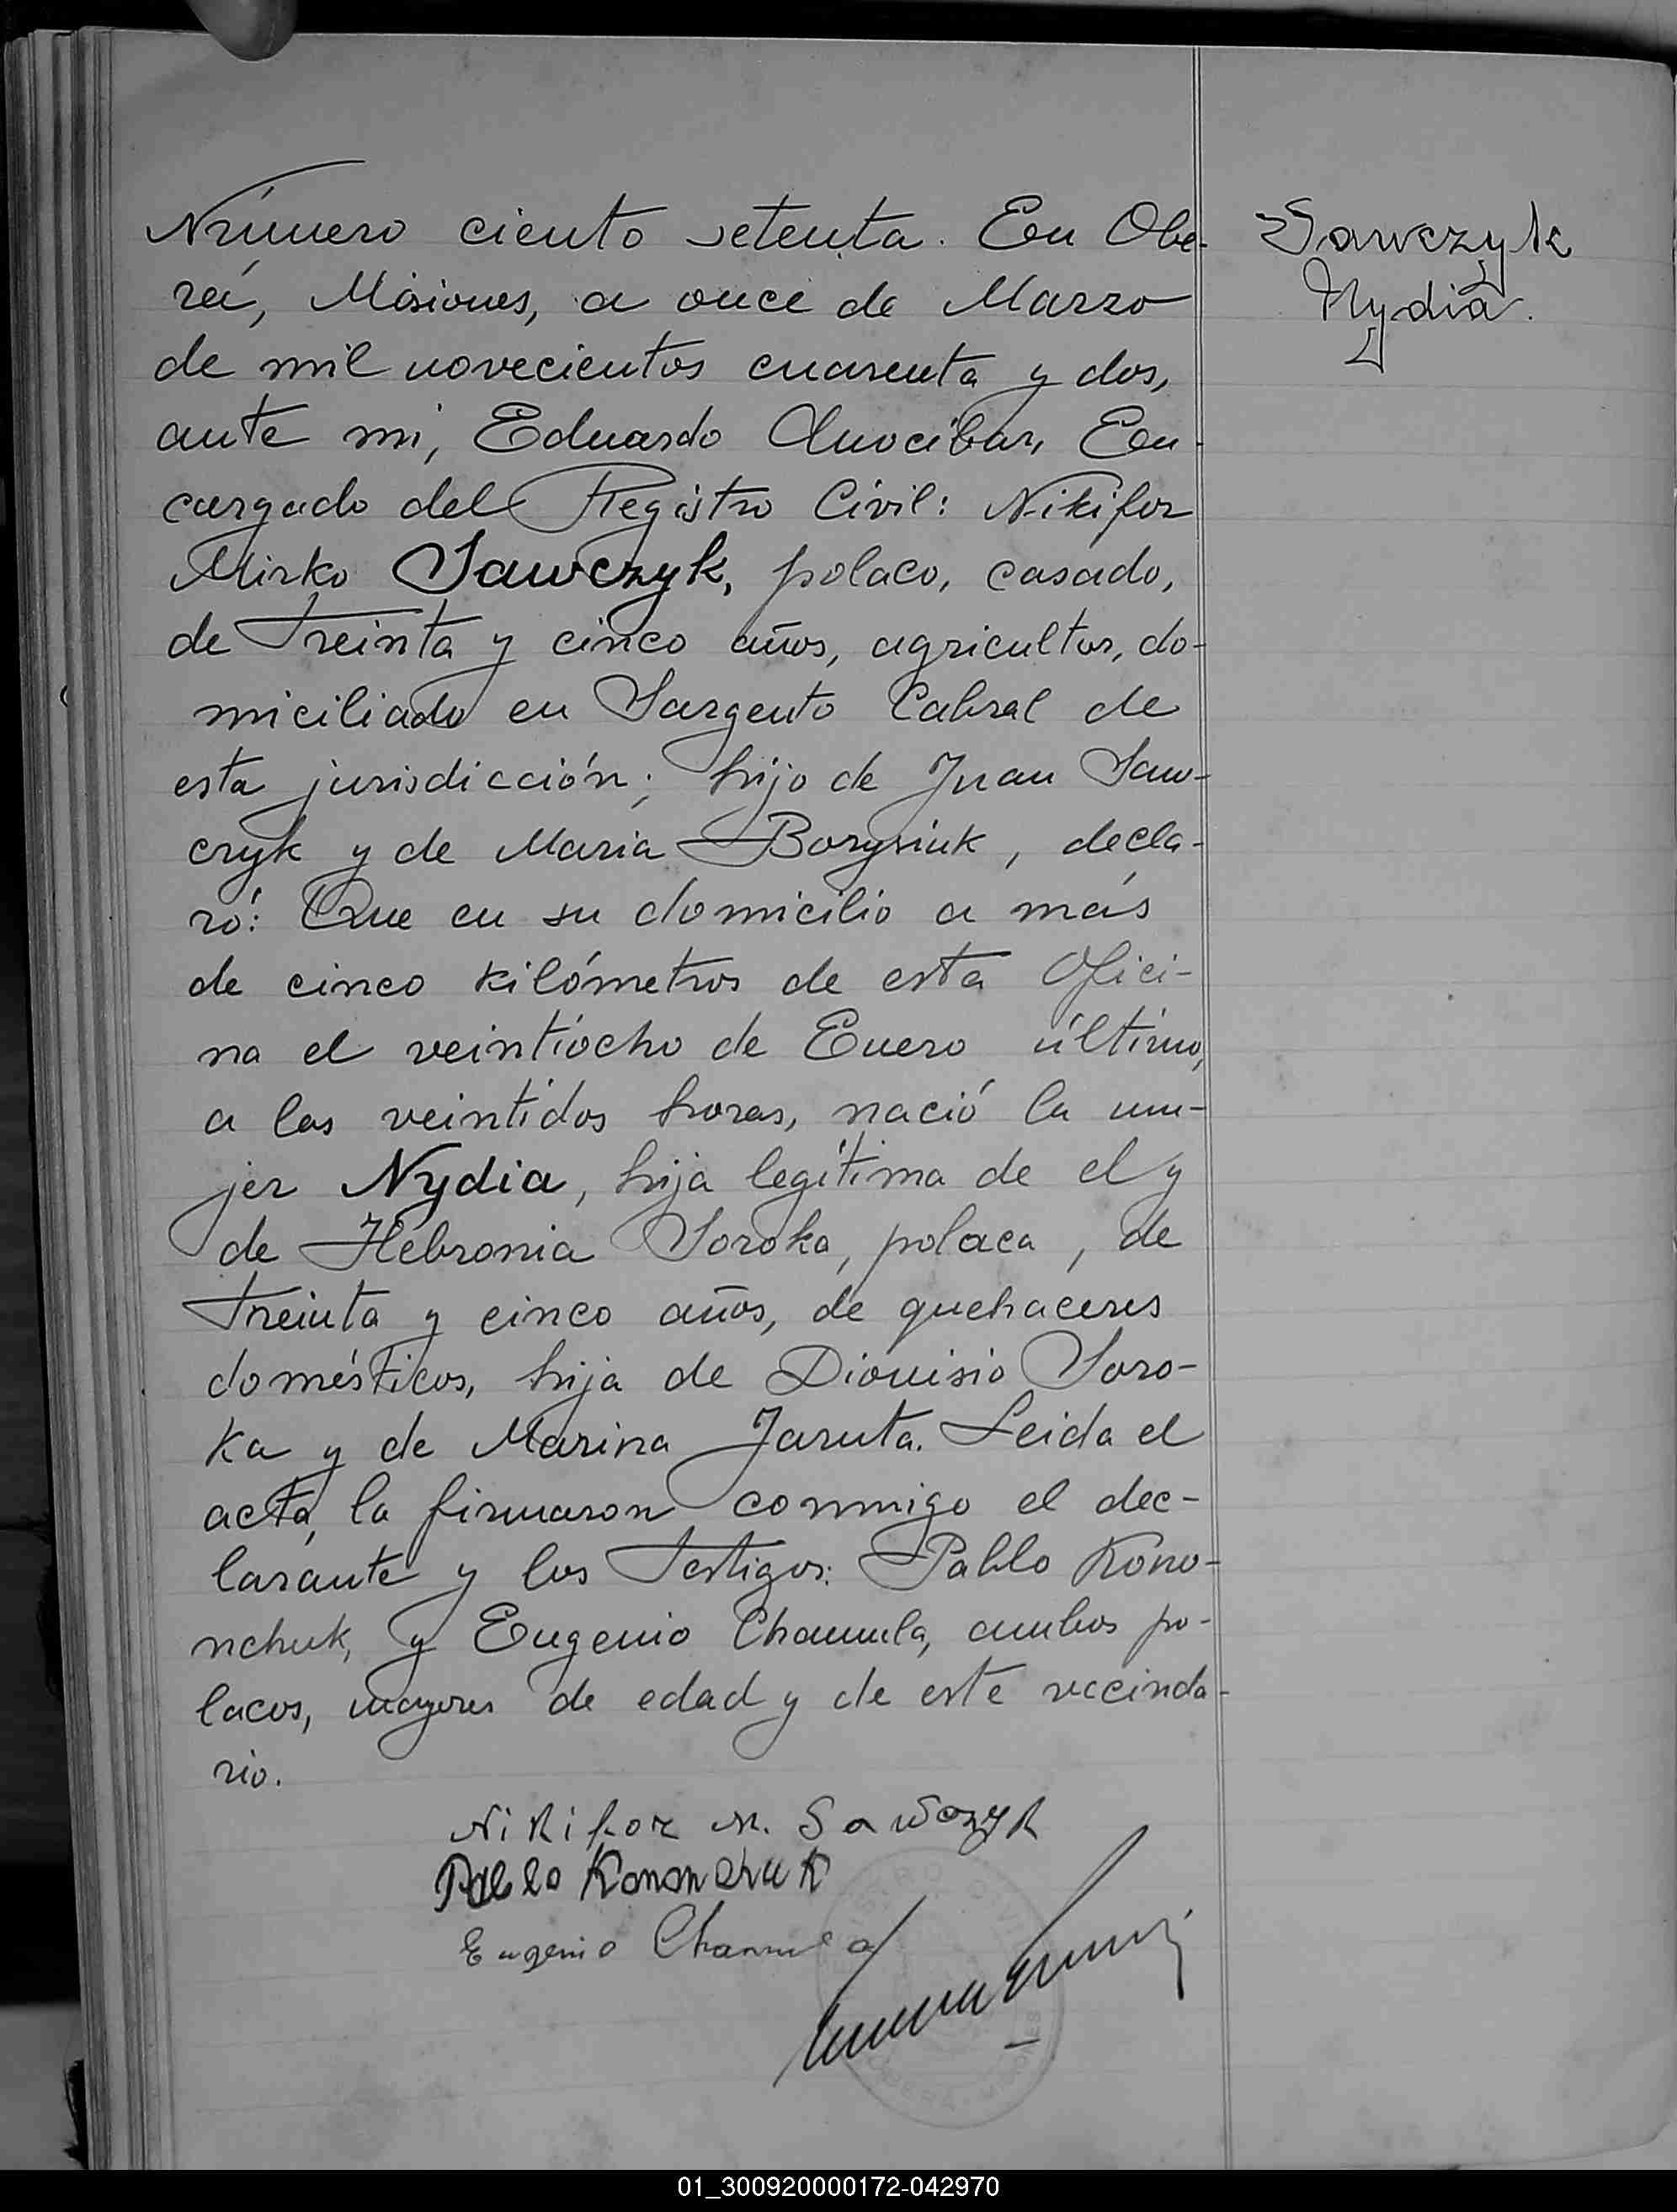 Número ciento setenta. En Obe-
rá, Misiones, a once de Marzo
de mil novecientos cuarenta y dos,
ante mi, Eduardo Anocibar, En-
cargado del Registro Civil: Nikifor
Mirko Sawczyk, polaco, casado,
de Treinta y cinco años, agricultor, do-
miciliado en Sargento Cabral de
esta jurisdicción; hijo de Juan Saw-
czyk y de Maria Borysiuk, decla-
ró: Que en su domicilio a más
de cinco kilómetros de esta Ofici-
na el veintiocho de Enero último,
a las veintidos horas, nació la mu-
jer Nydia, hija legítima de el y
de Hebronia Soroka, polaca, de
Treinta y cinco años, de quehaceres
domésticos, hija de Dionisio Soro-
ka y de Marina Jaruta. Leida el
acta, la firmaron conmigo el dec-
larante y los Testigos: Pablo Kono-
nchuk, y Eugenio Chamula, ambos po-
lacos, mayores de edad y de este vecinda-
rio.
Nikifor M. Sawczyk
Pablo Kononchuk
Eugenio Chamula
Sawczyk
Nydia.
01_300920000172-042970